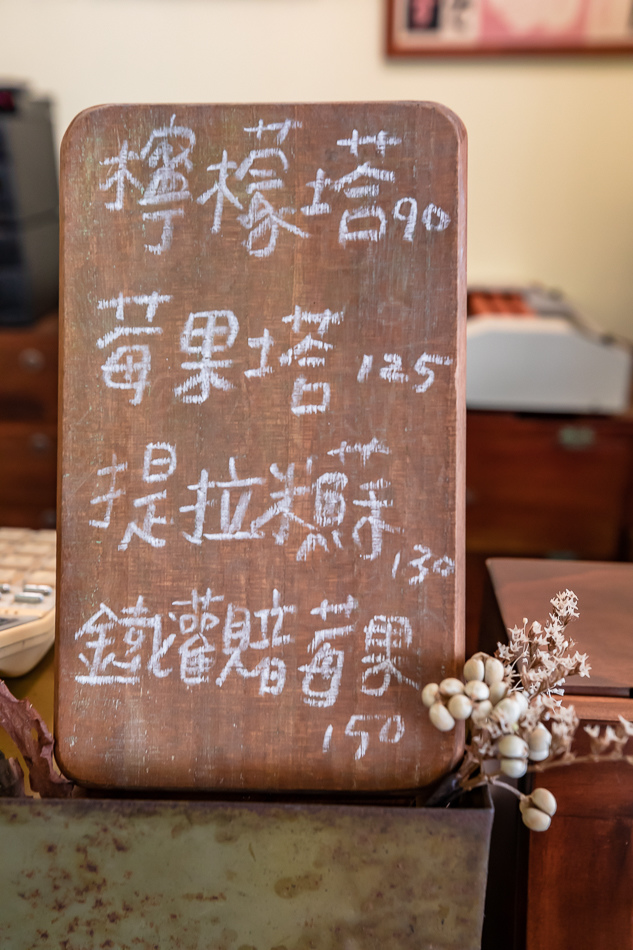 檸檬塔90
莓果塔 125
提拉米蘇
130
鐵觀音莓果
150